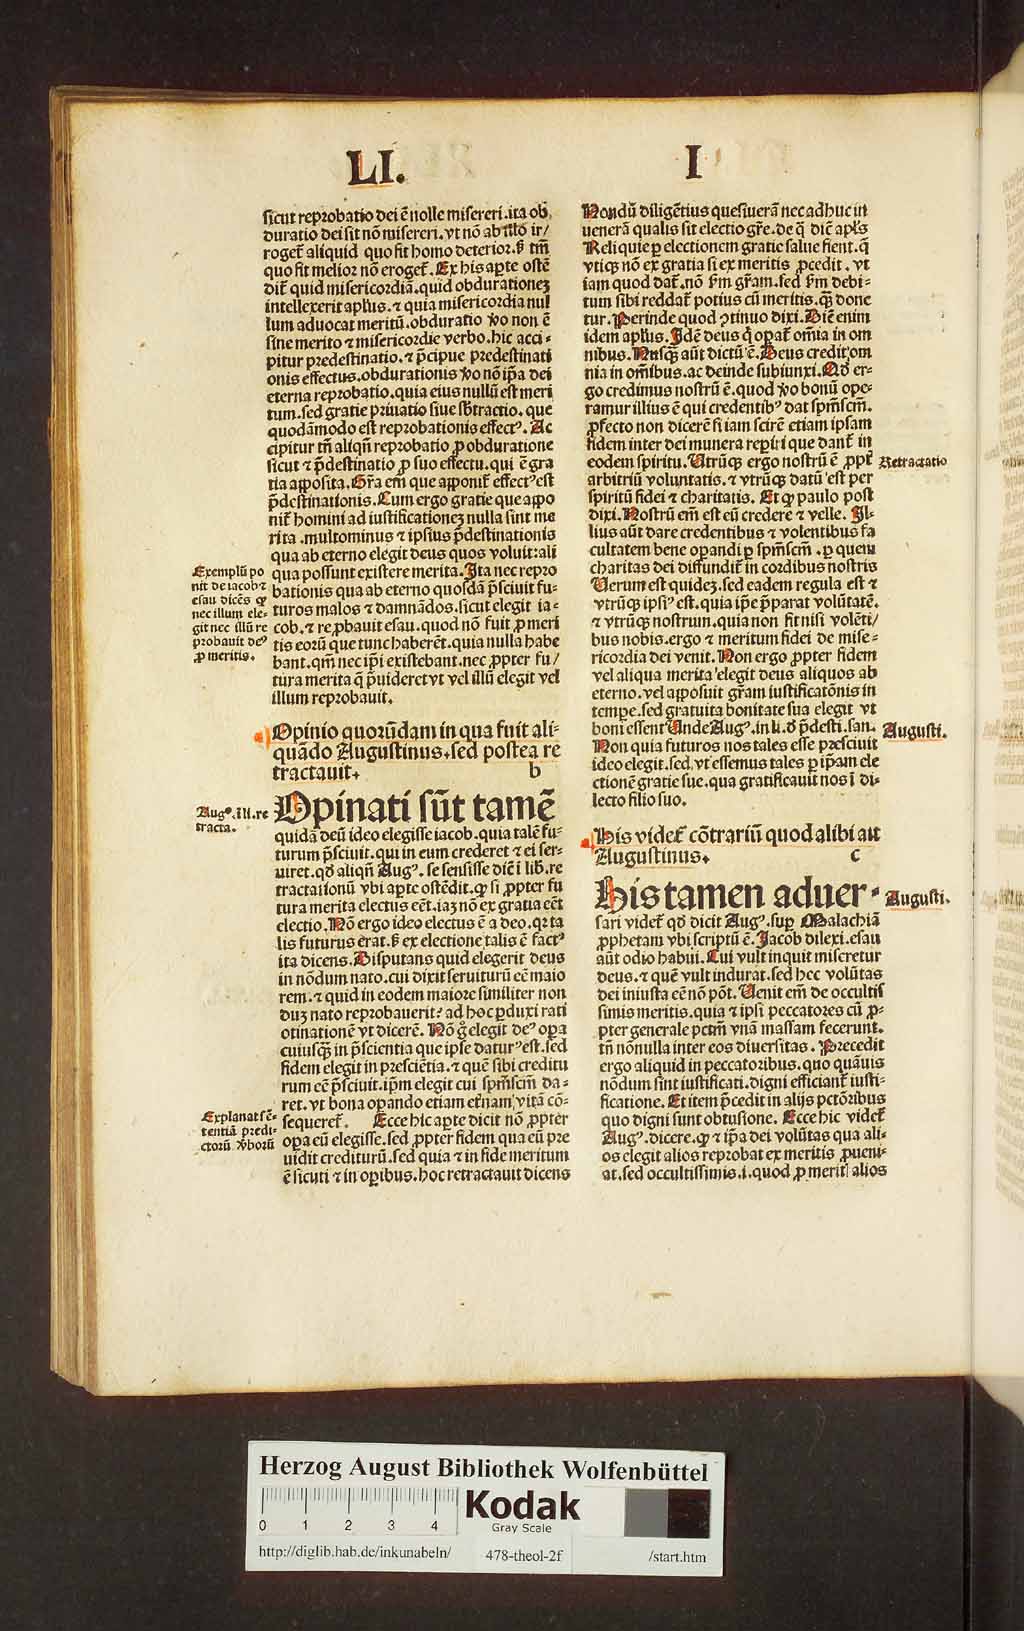 LI.
I
sicut reprobatio dei ē nolle misereri. ita ob
duratio dei sit nō misereri. vt nō ab illo ir/
rogeť aliquid quo fit homo deterior. ꝭ tm̄
quo fit melior nō erogeť. Ex his aꝑte ostē
diť quid misericordiā. quid obdurationeꝫ
intellexerit apl̄us. ⁊ quia misericordia nul
lum aduocat meritū. obduratio ꝟo non ē
sine merito ⁊ misericordie verbo. hic acci⸗
pitur predestinatio. ⁊ p̄cipue predestinati
onis effectus. obdurationis ꝟo nō ip̄a dei
eterna reprobatio. quia eius nullū est meri
tum. sed gratie priuatio siue sb̄tractio. que
quodāmodo est reprobationis effectꝰ. Ac
cipitur tn̄ aliqn̄ reprobatio ꝓ obduratione
sicut ⁊ p̄destinatio ꝓ suo effectu. qui ē gra
tia apposita. Gr̄a em̄ que apponiť effectꝰ est
p̄destinationis. Cum ergo gratie que appo
niť homini ad iustificationeꝫ nulla sint me
rita. multominus ⁊ ipsius p̄destinationis
qua ab eterno elegit deus quos voluit: ali
qua possunt existere merita. Ita nec repro
bationis qua ab eterno quosdā p̄sciuit fu⸗
turos malos ⁊ damnādos. sicut elegit ia⸗
cob. ⁊ reꝓbauit esau. quod nō fuit ꝓ meri
tis eorū que tunc haberēt. quia nulla habe
bant. qm̄ nec ip̄i existebant. nec ꝓpter fu/
tura merita q̄ p̄uideret vt vel illū elegit vel
illum reprobauit.
Exemplū po
nit de iacob ⁊
esau dicēs ꝙ
nec illum ele⸗
git nec illū re
probauit deꝰ
ꝓ meritis.
Opinio quorūdam in qua fuit ali⸗
quādo Augustinus. sed postea re
tractauit. b
Augꝰ. ī li. re
tracta.
Opinati sūt tamē
quidā deū ideo elegisse iacob. quia talē fu⸗
turum p̄sciuit. qui in eum crederet ⁊ ei ser⸗
uiret. qd̄ aliqn̄ Augꝰ. se sensisse dič ī lib. re
tractationū vbi aꝑte ostēdit. ꝙ si ꝓpter fu
tura merita electus eēt. iaꝫ nō ex gratia eēt
electio. Nō ergo ideo electus ē a deo. qꝛ ta
lis futurus erat. ꝭ ex electione talis ē factꝰ
ita dicens. Disputans quid elegerit deus
in nōdum nato. cui dixit seruiturū eē maio
rem. ⁊ quid in eodem maiore similiter non
duꝫ nato reprobauerit: ad hoc ꝑduxi rati
otinationē vt dicerē. Nō g̊ elegit deꝰ oꝑa
cuiusqꝫ in p̄scientia que ipse daturꝰ est. sed
fidem elegit in prescientia. ⁊ quē sibi creditu
rum eē p̄sciuit. ip̄m elegit cui spm̄scm̄ da⸗
ret. vt bona oꝑando etiam eťnam vitā cō⸗
sequereť. Ecce hic aꝑte dicit nō ꝓpter
oꝑa eū elegisse. sed ꝓpter fidem qua eū pre
uidit crediturū. sed quia ⁊ in fide meritum
ē sicuti ⁊ in oꝑibus. hoc retractauit dicens
Explanat sē⸗
tentiā predi⸗
ctorū ꝟborū
Nondū diligētius quesiuerā nec adhuc in
uenerā qualis sit electio gr̄e. de q̄ dič apl̄s
Reliquie ꝑ electionem gratie salue fient. q̄
vtiqꝫ nō ex gratia si ex meritis ꝓcedit. vt
iam quod dať. nō ẜm gr̄am. sed ẜm debi⸗
tum sibi reddať potius cū meritis. qꝫ done
tur. Perinde quod ꝯtinuo dixi. Dič enim
idem apl̄us. Idē deus q̇ oꝑať om̄ia in om
nibus. Nusqꝫ aūt dictū ē. Deus credit om
nia in om̄ibus. ac deinde subiunxi. Qd̄ er⸗
go credimus nostrū ē. quod ꝟo bonū ope⸗
ramur illius ē qui credentibꝰ dat spm̄scm̄.
ꝓfecto non dicerē si iam scirē etiam ipsam
fidem inter dei munera reꝑiri que danť in
eodem spiritu. Utrūqꝫ ergo nostrū ē ꝓpť
arbitriū voluntatis. ⁊ vtrūqꝫ datū est per
spiritū fidei ⁊ charitatis. Et ꝙ paulo post
dixi. Nostrū em̄ est eū credere ⁊ velle. Il⸗
lius aūt dare credentibus ⁊ volentibus fa
cultatem bene oꝑandi ꝑ spm̄scm̄. ꝑ quem
charitas dei diffundiť in cordibus nostris
Uerum est quideꝫ. sed eadem regula est ⁊
vtrūqꝫ ipsiꝰ est. quia ip̄e p̄parat volūtatē.
⁊ vtrūqꝫ nostrum. quia non fit nisi volēti/
bus nobis. ergo ⁊ meritum fidei de mise⸗
ricordia dei venit. Non ergo ꝓpter fidem
vel aliqua merita elegit deus aliquos ab
eterno. vel apposuit gr̄am iustificatōnis in
tempe. sed gratuita bonitate sua elegit vt
boni essent Unde Augꝰ. in li. ď p̄desti. san.
Non quia futuros nos tales esse presciuit
ideo elegit. sed. vt essemus tales ꝑ ip̄am ele
ctionē gratie sue. qua gratificauit nos ī di⸗
lecto filio suo.
Retractatio
Augusti.
His videť cōtrariū quod alibi ait
Augustinus. c
His tamen aduer⸗
sari videť qd̄ dicit Augꝰ. suꝑ Malachiā
ꝓphetam vbi scriptū ē. Jacob dilexi. esau
aūt odio habui. Cui vult inquit miseretur
deus. ⁊ quē vult indurat. sed hec volūtas
dei iniusta eē nō pōt. Uenit em̄ de occultis
simis meritis. quia ⁊ ipsi peccatores cū ꝓ⸗
pter generale pctm̄ vnā massam fecerunt.
tn̄ nōnulla inter eos diuersitas. Precedit
ergo aliquid in peccatoribus. quo quāuis
nōdum sint iustificati. digni efficianť iusti⸗
ficatione. Et item p̄cedit in alijs pctōribus
quo digni sunt obtusione. Ecce hic videť
Augꝰ. dicere. ꝙ ⁊ ip̄a dei volūtas qua ali⸗
os elegit alios reprobat ex meritis ꝓueni⸗
at. sed occultissimis. i. quod ꝓ meriť alios
Augusti.
Herzog August Bibliothek Wolfenbüttel
0 1 2 3 4
Kodak
Gray Scale
http://diglib.hab.de/inkunabeln/ 478-theol-2f /start.htm